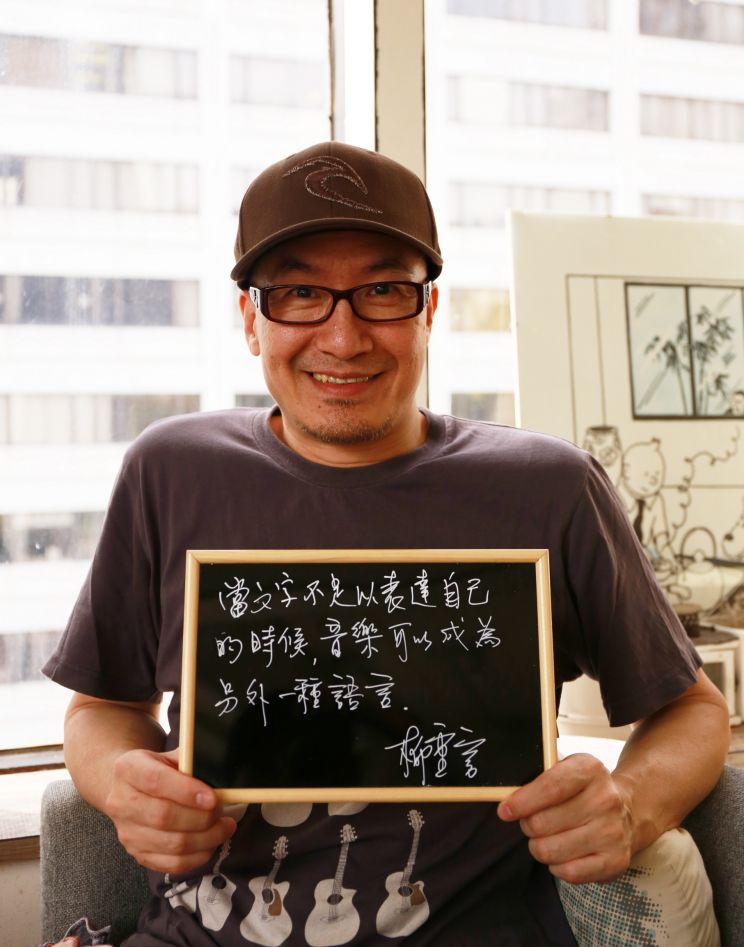 當文字不足以表達自己
的時候,音樂可以成為
另外一種語言.
柳重言